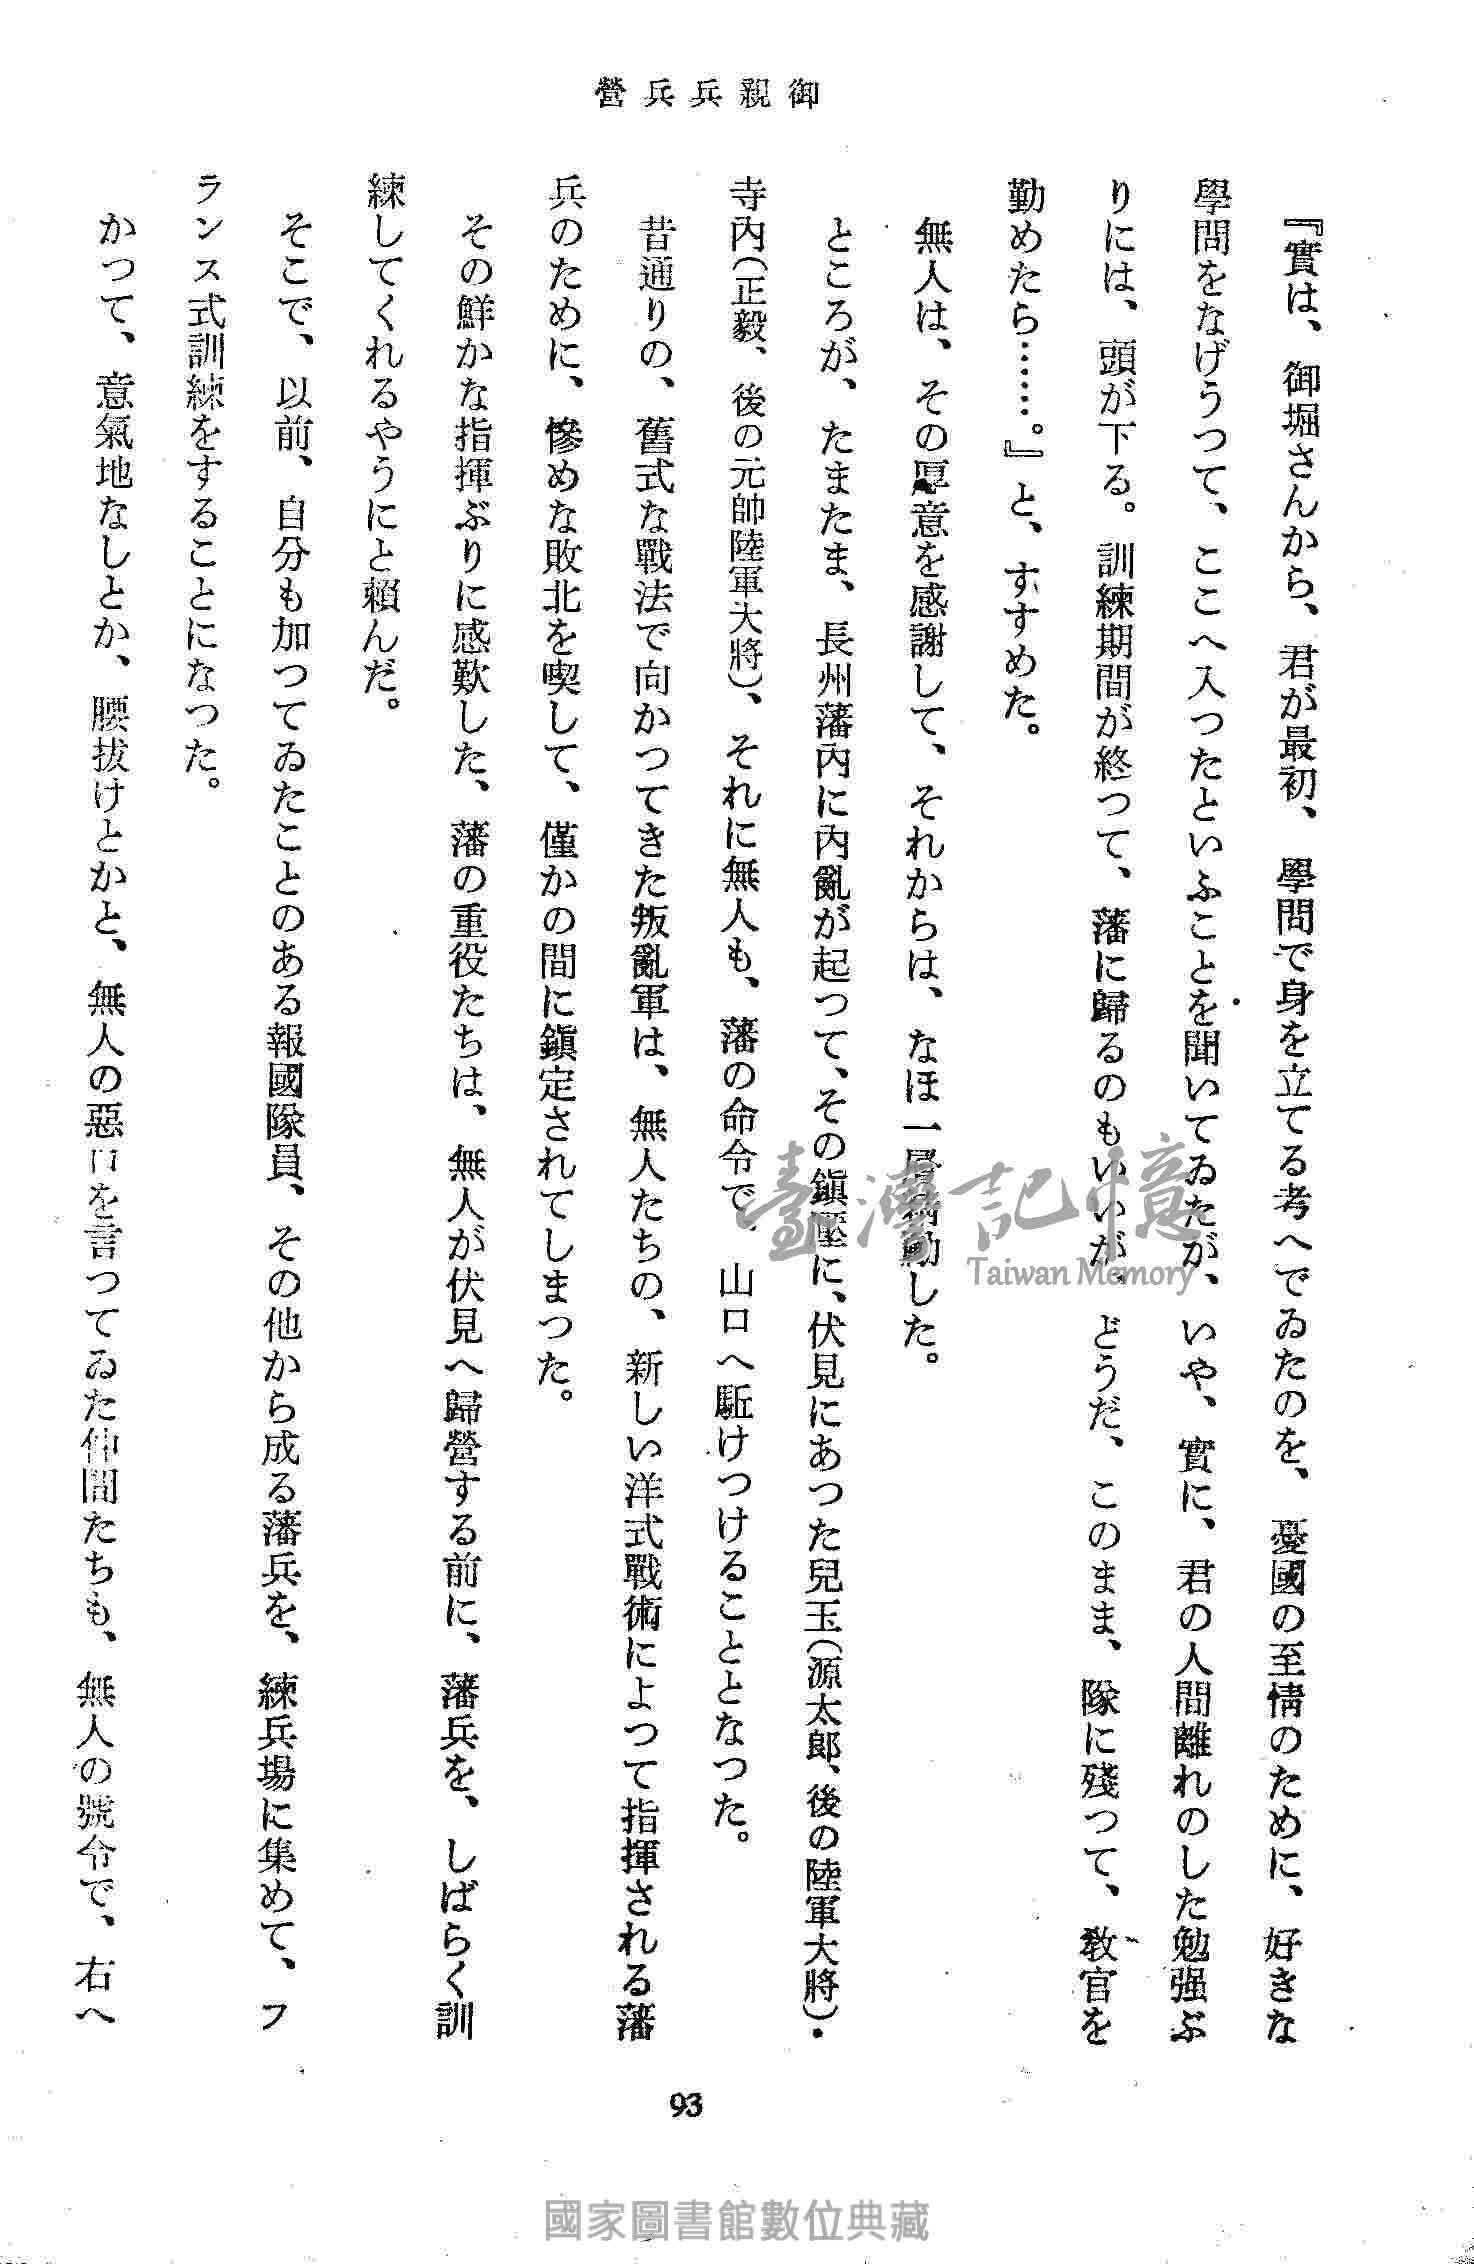 御親兵兵營
『實は、御堀さんから、君が最初、學問で身を立てる考へでゐたのを、憂國の至情のために、好きな
學問をなげうつて、ここへ入つたといふことを聞いてゐたが、いや、實に、君の人間離れのした勉强ぶ
りには、頭が下る。訓練期間が終つて、藩に歸るのもいいが、どうだ、このまま、隊に殘つて、敎官を
勤めたら……。』と、すすめた。
無人は、その厚意を感謝して、それからは、なほ一層動した。
ところが、たまたま、長州藩內に內亂が起つて、その鎭壓に、伏見にあつた兒玉（源太郎、後の陸軍大將）・
寺內（正毅、後の元帥陸軍大將）、それに無人も、藩の命令で、山口へ駈けつけることとなつた。
昔通りの、舊式な戰法で向かつてきた叛亂軍は、無人たちの、新しい洋式戰術によつて指揮される藩
兵のために、慘めな敗北を喫して、僅かの間に鎭定されてしまつた。
その鮮かな指揮ぶりに感歎した、藩の重役たちは、無人が伏見へ歸營する前に、藩兵を、しばらく訓
練してくれるやうにと賴んだ。
そこで、以前、自分も加つてゐたことのある報國隊員、その他から成る藩兵を、練兵場に集めて、フ
ランス式訓練をすることになつた。
かつて、意氣地なしとか、腰拔けとかと、無人の惡口を言つてゐた仲間たちも、無人の號令で、右へ
93
臺灣記憶
Taiwan Memory
國家圖書館數位典藏